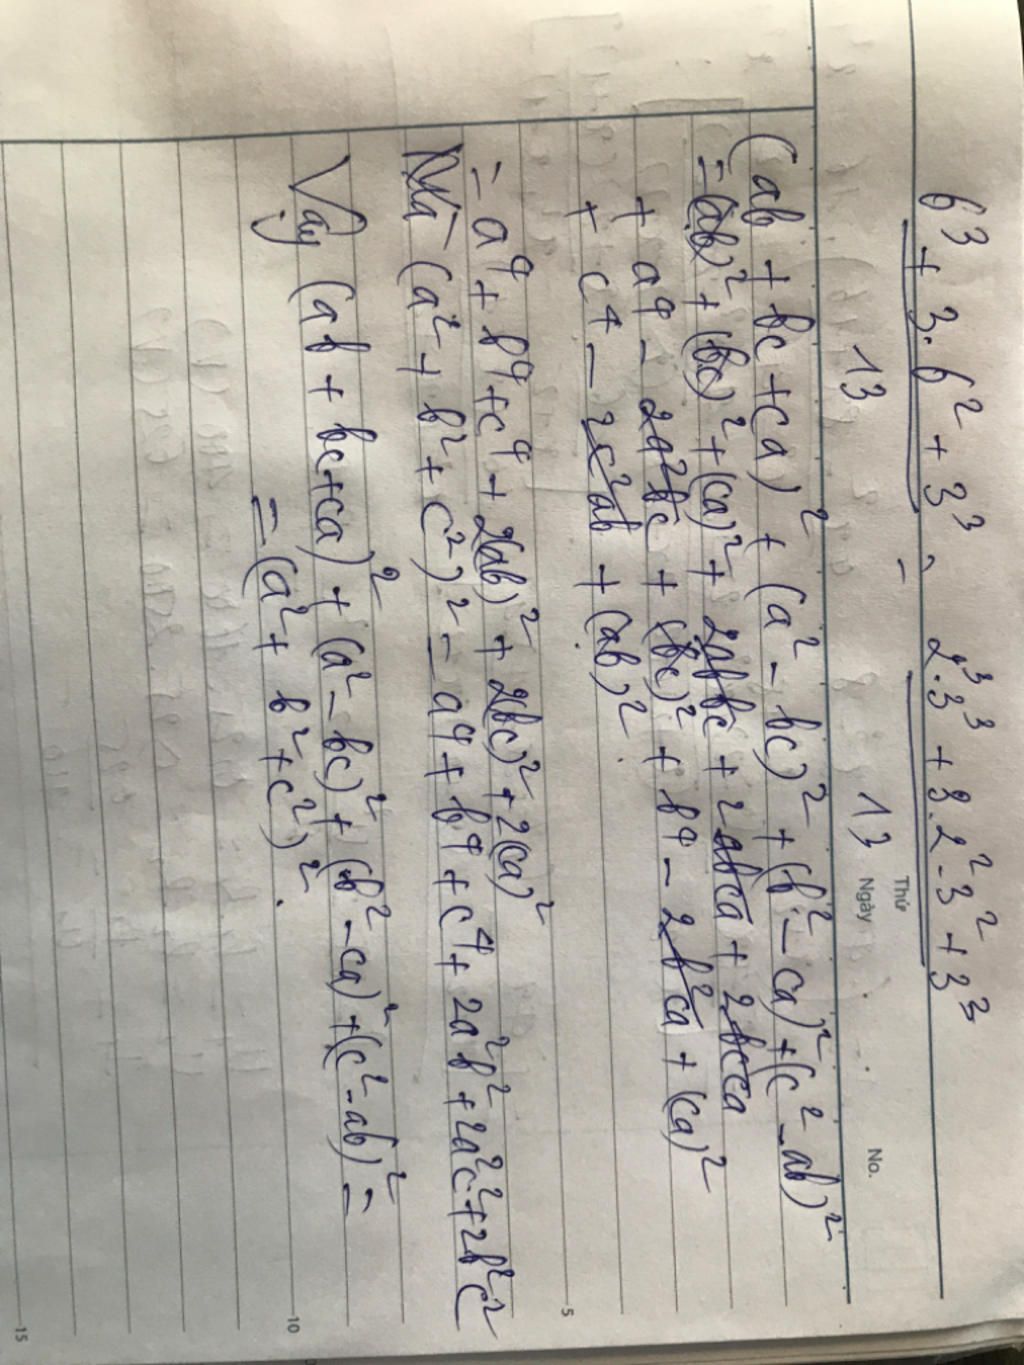 6³ + 3.6² + 3³ = 2³.3³ + 3.2².3² + 3³
13 13
Thứ
Ngày No.
(ab + bc + ca)² + (a² - bc)² + (b² - ca)² + (c² - ab)²
= (ab)² + (bc)² + (ca)² + 2abbc + 2abca + 2bcca
+ a⁴ - 2a²bc + (bc)² + b⁴ - 2b²ca + (ca)²
+ c⁴ - 2c²ab + (ab)²
5
= a⁴ + b⁴ + c⁴ + 2(ab)² + 2(bc)² + 2(ca)²
Mà (a² + b² + c²)² = a⁴ + b⁴ + c⁴ + 2a²b² + 2a²c² + 2b²c²
Vậy (ab + bc + ca)² + (a² - bc)² + (b² - ca)² + (c² - ab)² =
10
= (a² + b² + c²)².
15